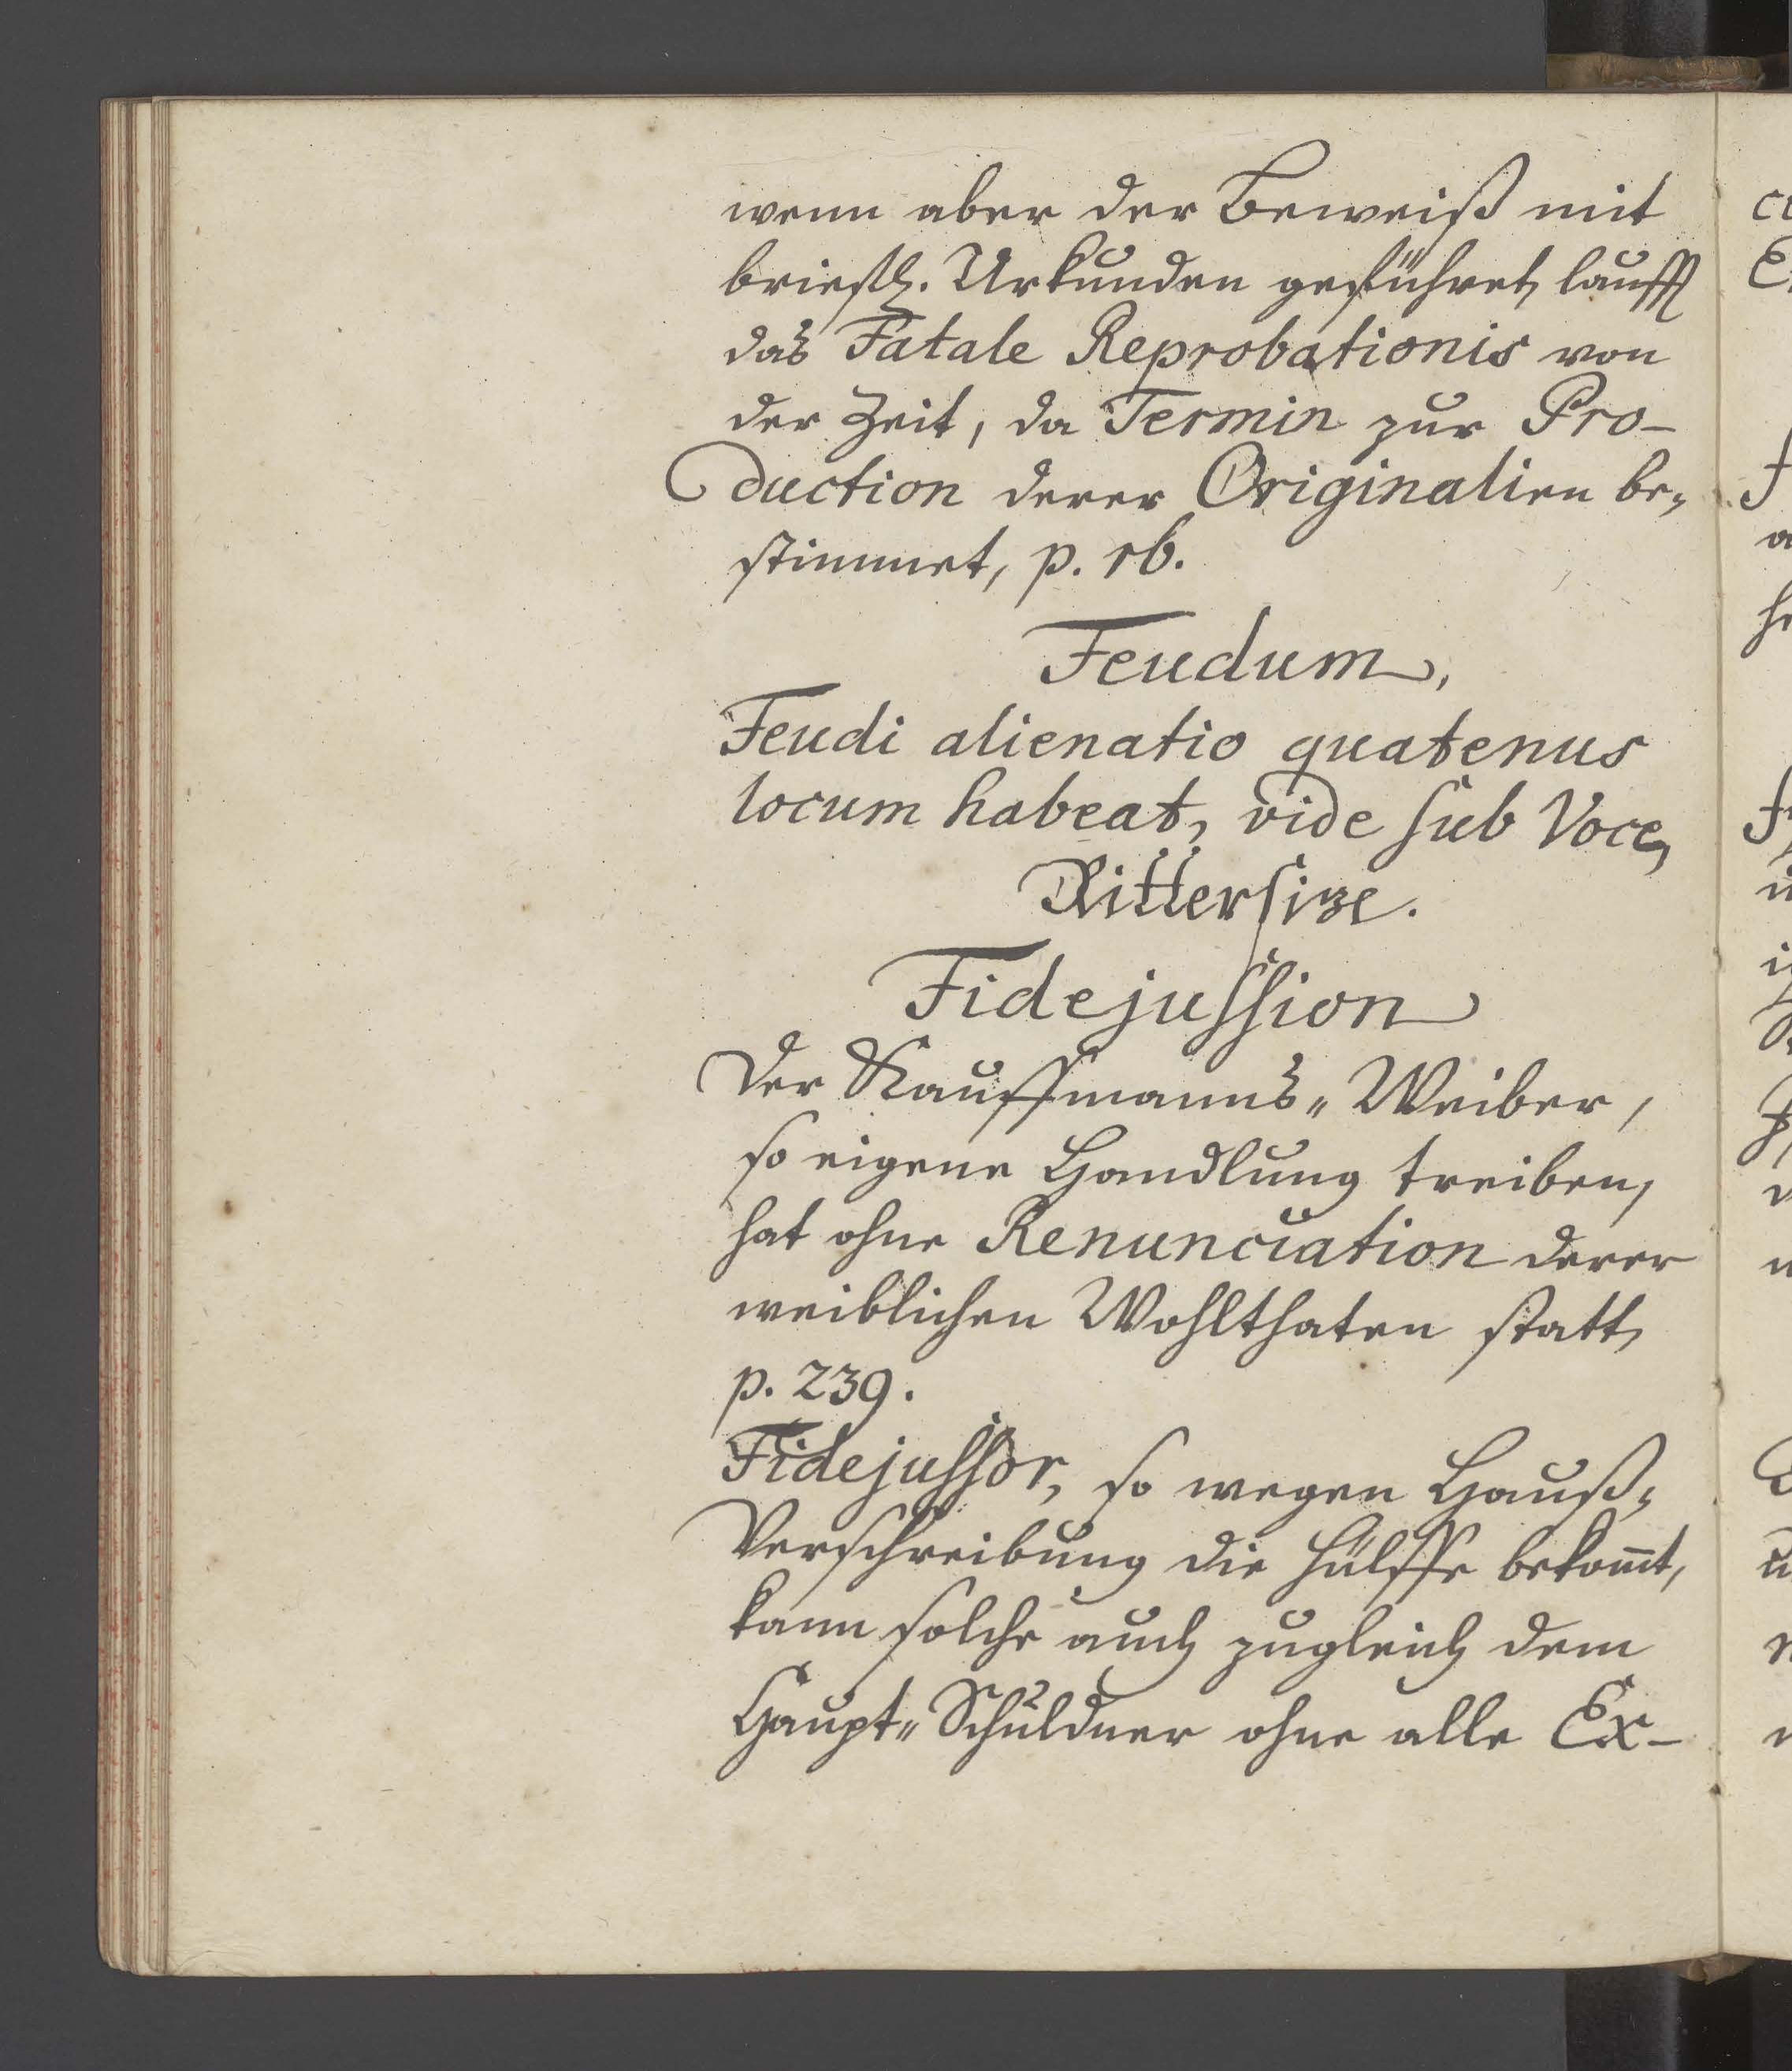 wenn aber der Beweiß mit
briefl. Urkunden geführet, laufft
das Fatale Reprobationis von
der Zeit, da Termin zur Pro-
duction derer Originalien be-
stimmet, p. 16.
Feudum,
Feudi alienatio quatenus
locum habeat, vide sub Voce,
Rittersize.
Fidejussion
Der Kauffmanns-Weiber,
so eigene Handlung treiben,
hat ohne Renunciation derer
weiblichen Wohlthaten statt,
p. 239.
Fidejussor, so wegen Hauß-
Verschreibung die Hülffe bekom̅t,
kann solche auch zugleich dem
Haupt-Schuldner ohne alle Ex-